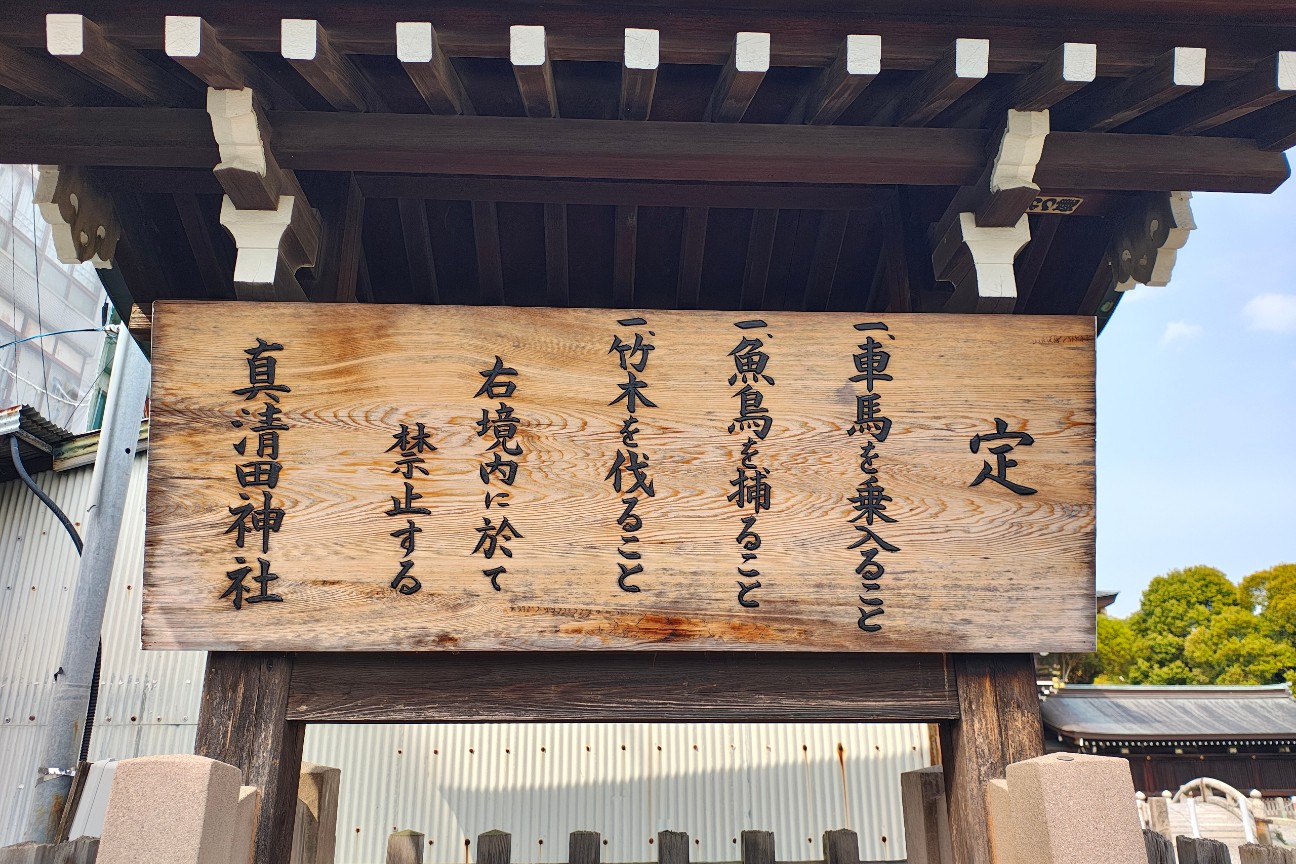 定
一、車馬を乗入ること
一、魚鳥を捕ること
一、竹木を伐ること
右境内に於て
禁止する
真清田神社